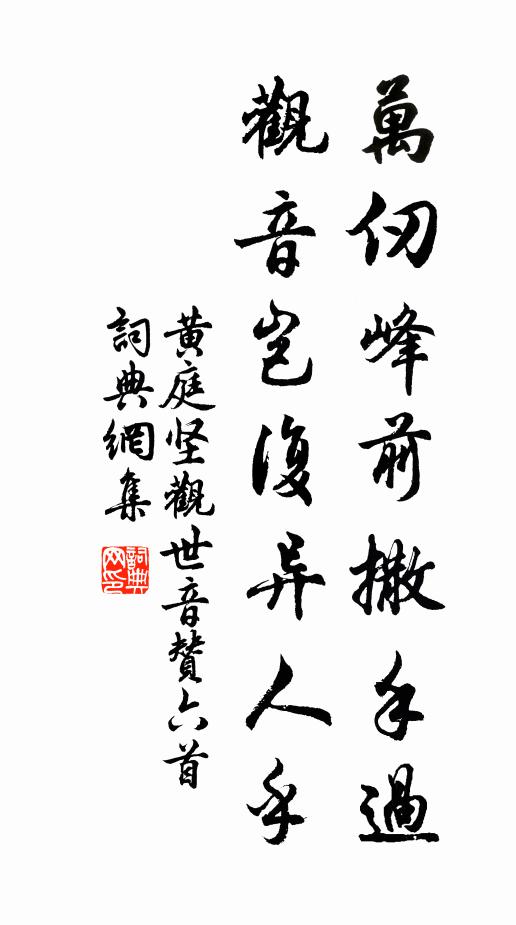 萬仞峰前撒手過
觀音岂復异人乎
黄庭坚觀世音贊六首
詞典網集
詞典网印